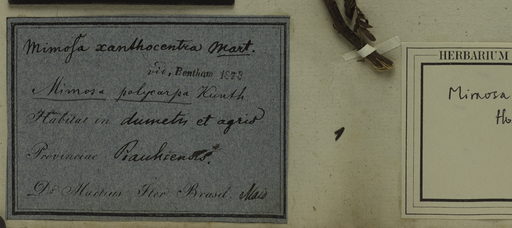 Mimosa xanthocentra Mart.
vid. Bentham 1875
Mimosa polycarpa Kunth
Habitat in dumetis et agris
Provinciae Piauhiensis.
Dr. Martius Iter Brasil. Maio
HERBARIUM
Mimosa